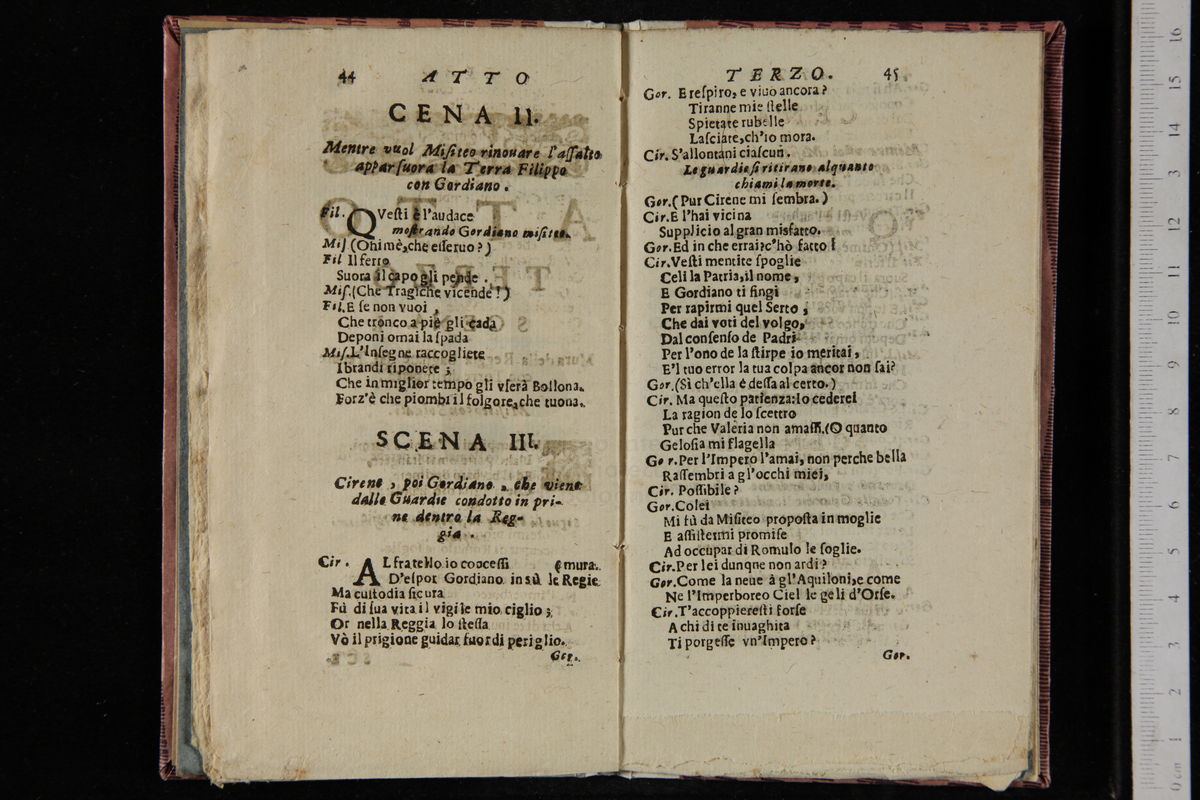 44 ATTO
CENA II.
Mentre vuol Misiteo rinouare l'assalto
appar suora la Terra Filippo
con Gordiano.
Fil. QVesti è l'audace
mostrando Gordiano misiteo.
Mis (Ohimè, che esseruo?)
Fil Il ferro
Suora il capo gli pende.
Mis. (Che Tragiche vicende!)
Fil. E se non vuoi,
Che tronco a piè gli cada
Deponi omai la spada
Mis. L'Insegne raccogliete
I brandi riponete;
Che in miglior tempo gli vserà Bollona.
Forz'è che piombi il folgore, che tuona.
SCENA III.
Cirene, poi Gordiano, che viene
dalle Guardie condotto in pri-
ne dentro la Reg-
gia.
Cir. AL fratello io concessi (mura.
D'espor Gordiano in sù le Regie
Ma custodia sicura
Fù di sua vita il vigile mio ciglio;
Or nella Reggia lo stessa
Vò il prigione guidar fuor di periglio.
Gor.
TERZO. 45
Gor. E respiro, e viuo ancora?
Tiranne mie stelle
Spietate rubelle
Lasciate, ch'io mora.
Cir. S'allontani ciascun.
Le guardie si ritirano alquanto
chiami la morte.
Gor. (Pur Cirene mi sembra.)
Cir. E l'hai vicina
Supplicio al gran misfatto.
Gor. Ed in che errai? c'hò fatto!
Cir. Vesti mentite spoglie
Celi la Patria, il nome,
E Gordiano ti fingi
Per rapirmi quel Serto,
Che dai voti del volgo,
Dal consenso de Padri
Per l'ono de la stirpe io meritai,
E'l tuo error la tua colpa ancor non sai?
Gor. (Sì ch'ella è dessa al certo.)
Cir. Ma questo patienza: Io cederei
La ragion de lo scettro
Pur che Valeria non amassi. (O quanto
Gelosia mi flagella
Gor. Per l'Impero l'amai, non perche bella
Rassembri a gl'occhi miei,
Cir. Possibile?
Gor. Colei
Mi fù da Misiteo proposta in moglie
E assistermi promise
Ad occupar di Romulo le soglie.
Cir. Per lei dunqne non ardi?
Gor. Come la neue à gl'Aquiloni, e come
Ne l'Imperboreo Ciel le geli d'Orse.
Cir. T'accoppieresti forse
A chi di te inuaghita
Ti porgesse vn'Impero?
Gor.